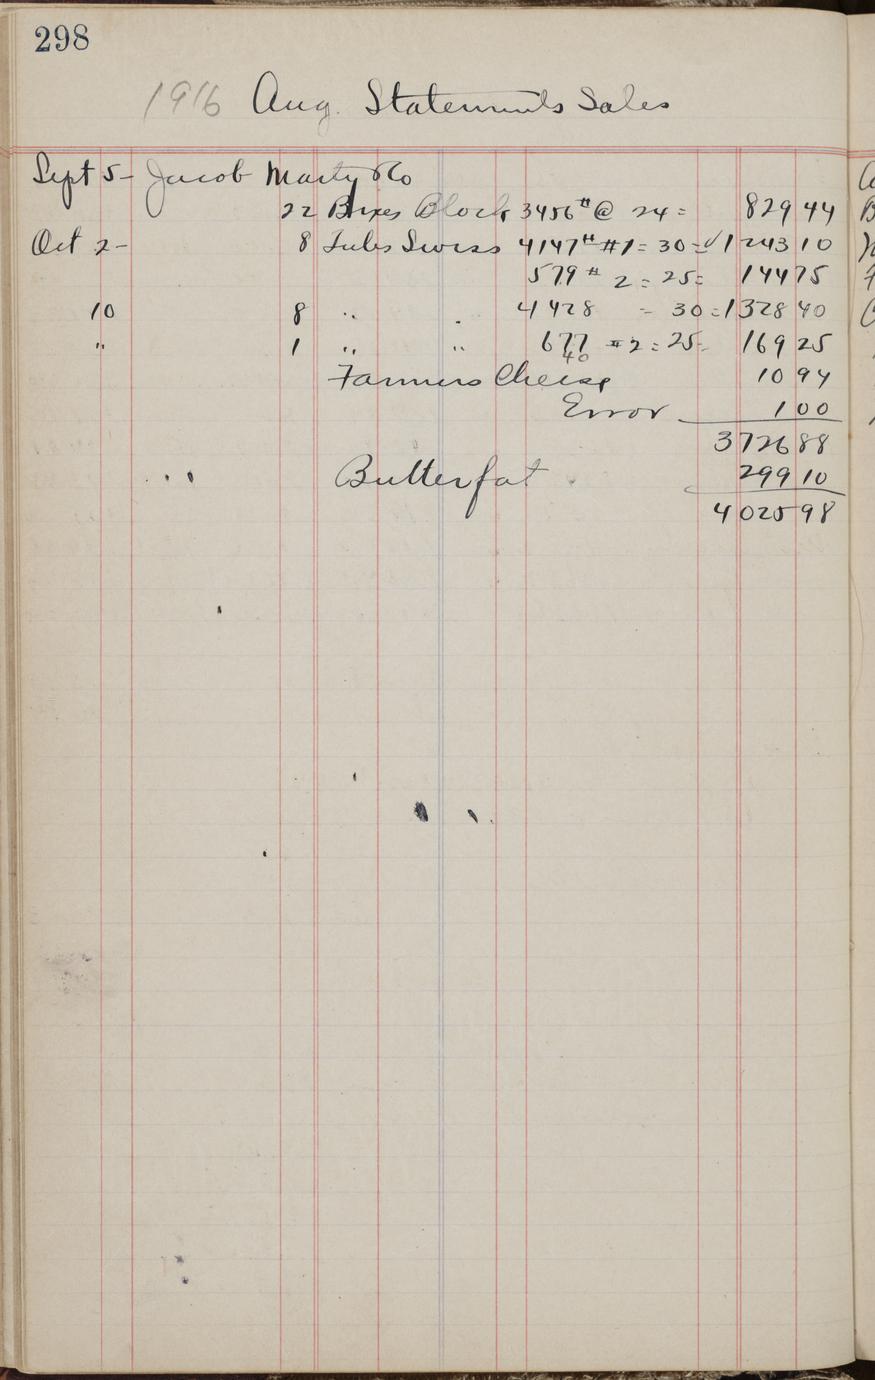 298
1916 Aug. Statements Sales
Sept 5- Jacob Marty Co
22 Boxes Block 3456# @ 24= 829 44
Oct 2- 8 Tubs Swiss 4147# #1= 30= √1243 10
579# 2= 25= 144 75
10 8 " " 4428 - 30=1328 40
" 1 " " 677 #2= 25- 169 25
40
Farmers Cheese 10 94
Error 1 00
3726 88
" Butterfat 299 10
4025 98